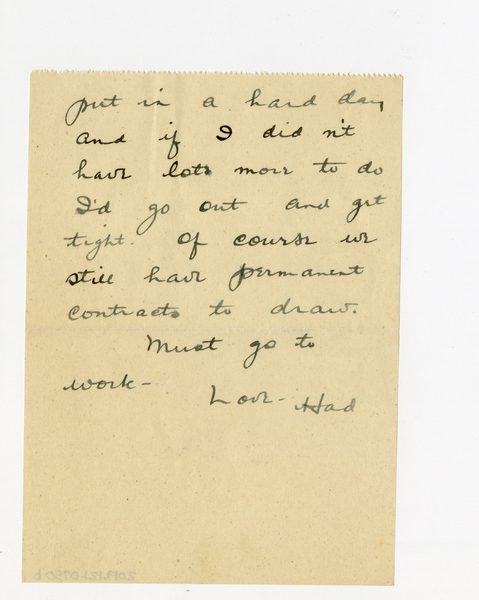 put in a hard day
and if I did n't
have lots more to do
I'd go out and get
tight. Of course we
still have permanent
contracts to draw.
Must go to
work-
Love- Had
2019.121.0750b